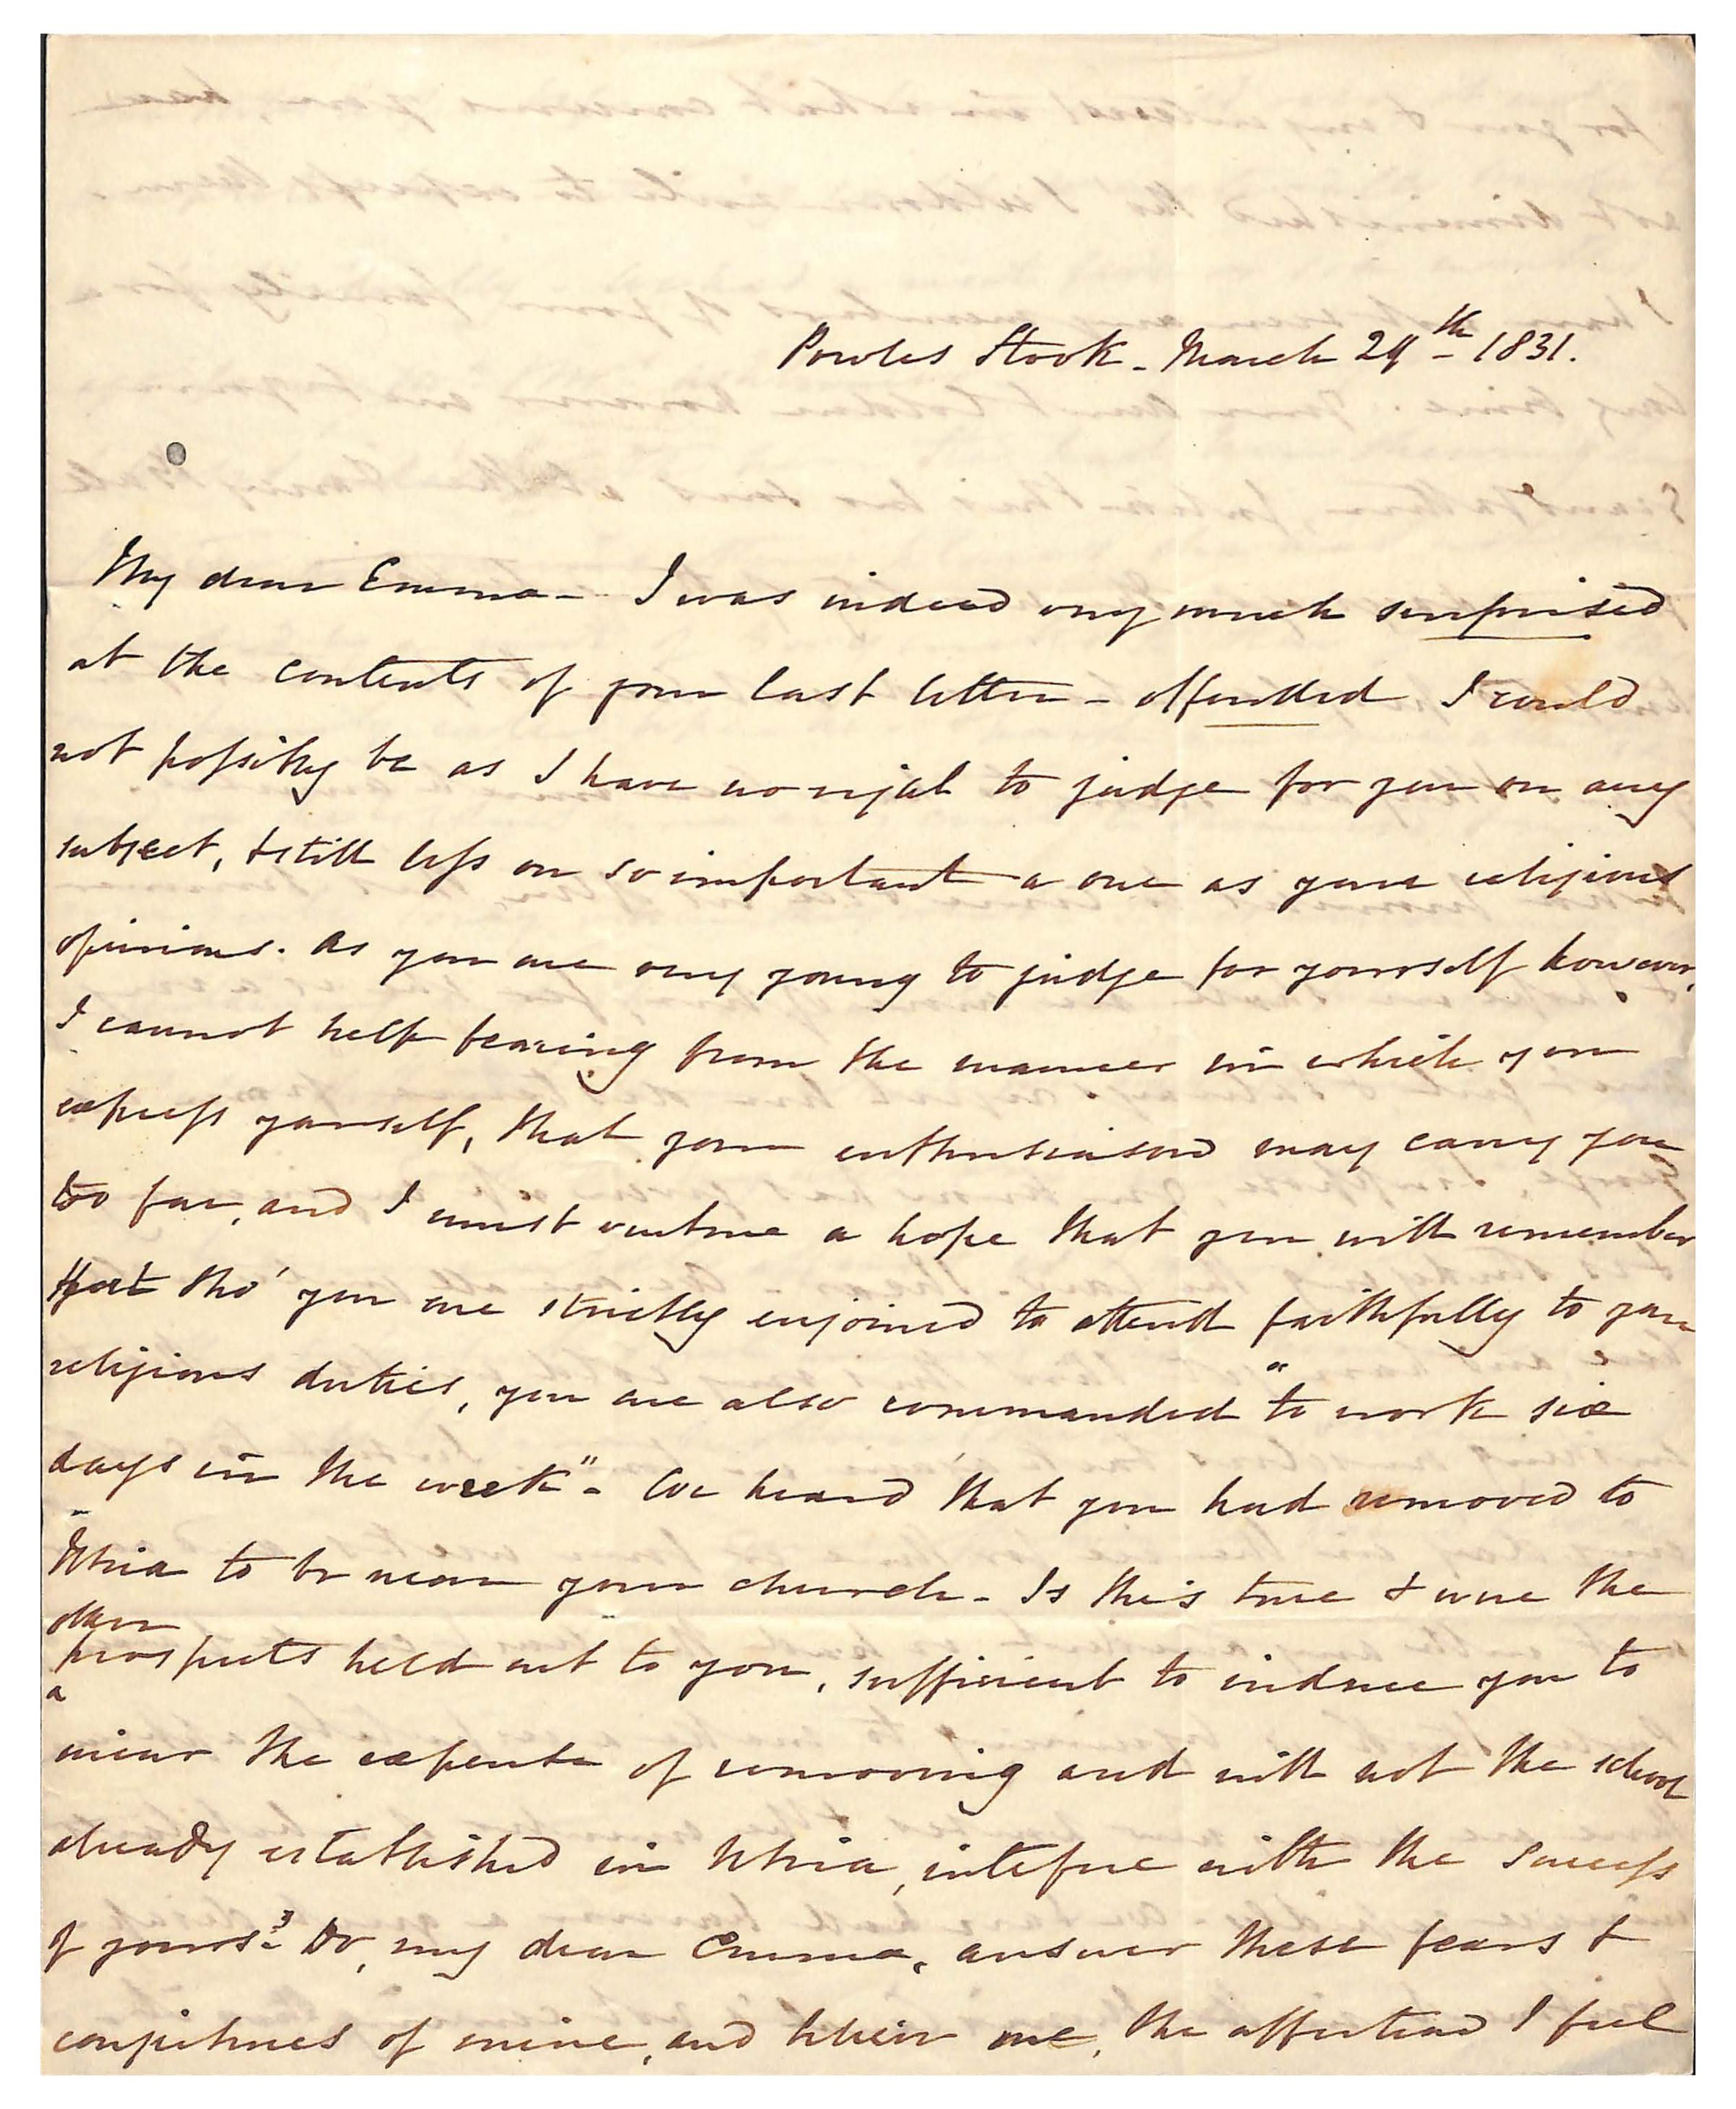 Powles Hook - March 24th - 1831.
My dear Emma - I was indeed very much surprised
at the contents of your last letter - offended I could
not possibly be as I have no right to judge for you on any
subject, & still less on so important a one as your religious
opinions. As you are very young to judge for yourself however,
I cannot help fearing from the manner in which you
express yourself, that your enthusiasm may carry you
too far, and I must venture a hope that you will remember
that tho' you are strictly enjoined to attend faithfully to your
religious duties, you are also commanded "to work six
days in the week" - We heard that you had removed to
Utica to be near your church - Is this true & were the
other
prospects held out to you, sufficient to induce you to
incur the expense of removing and will not the school
already established in Utica, intefere with the success
of yours? Do, my dear Emma, answer these fears &
conjectures of mine, and believe me, the affection I feel